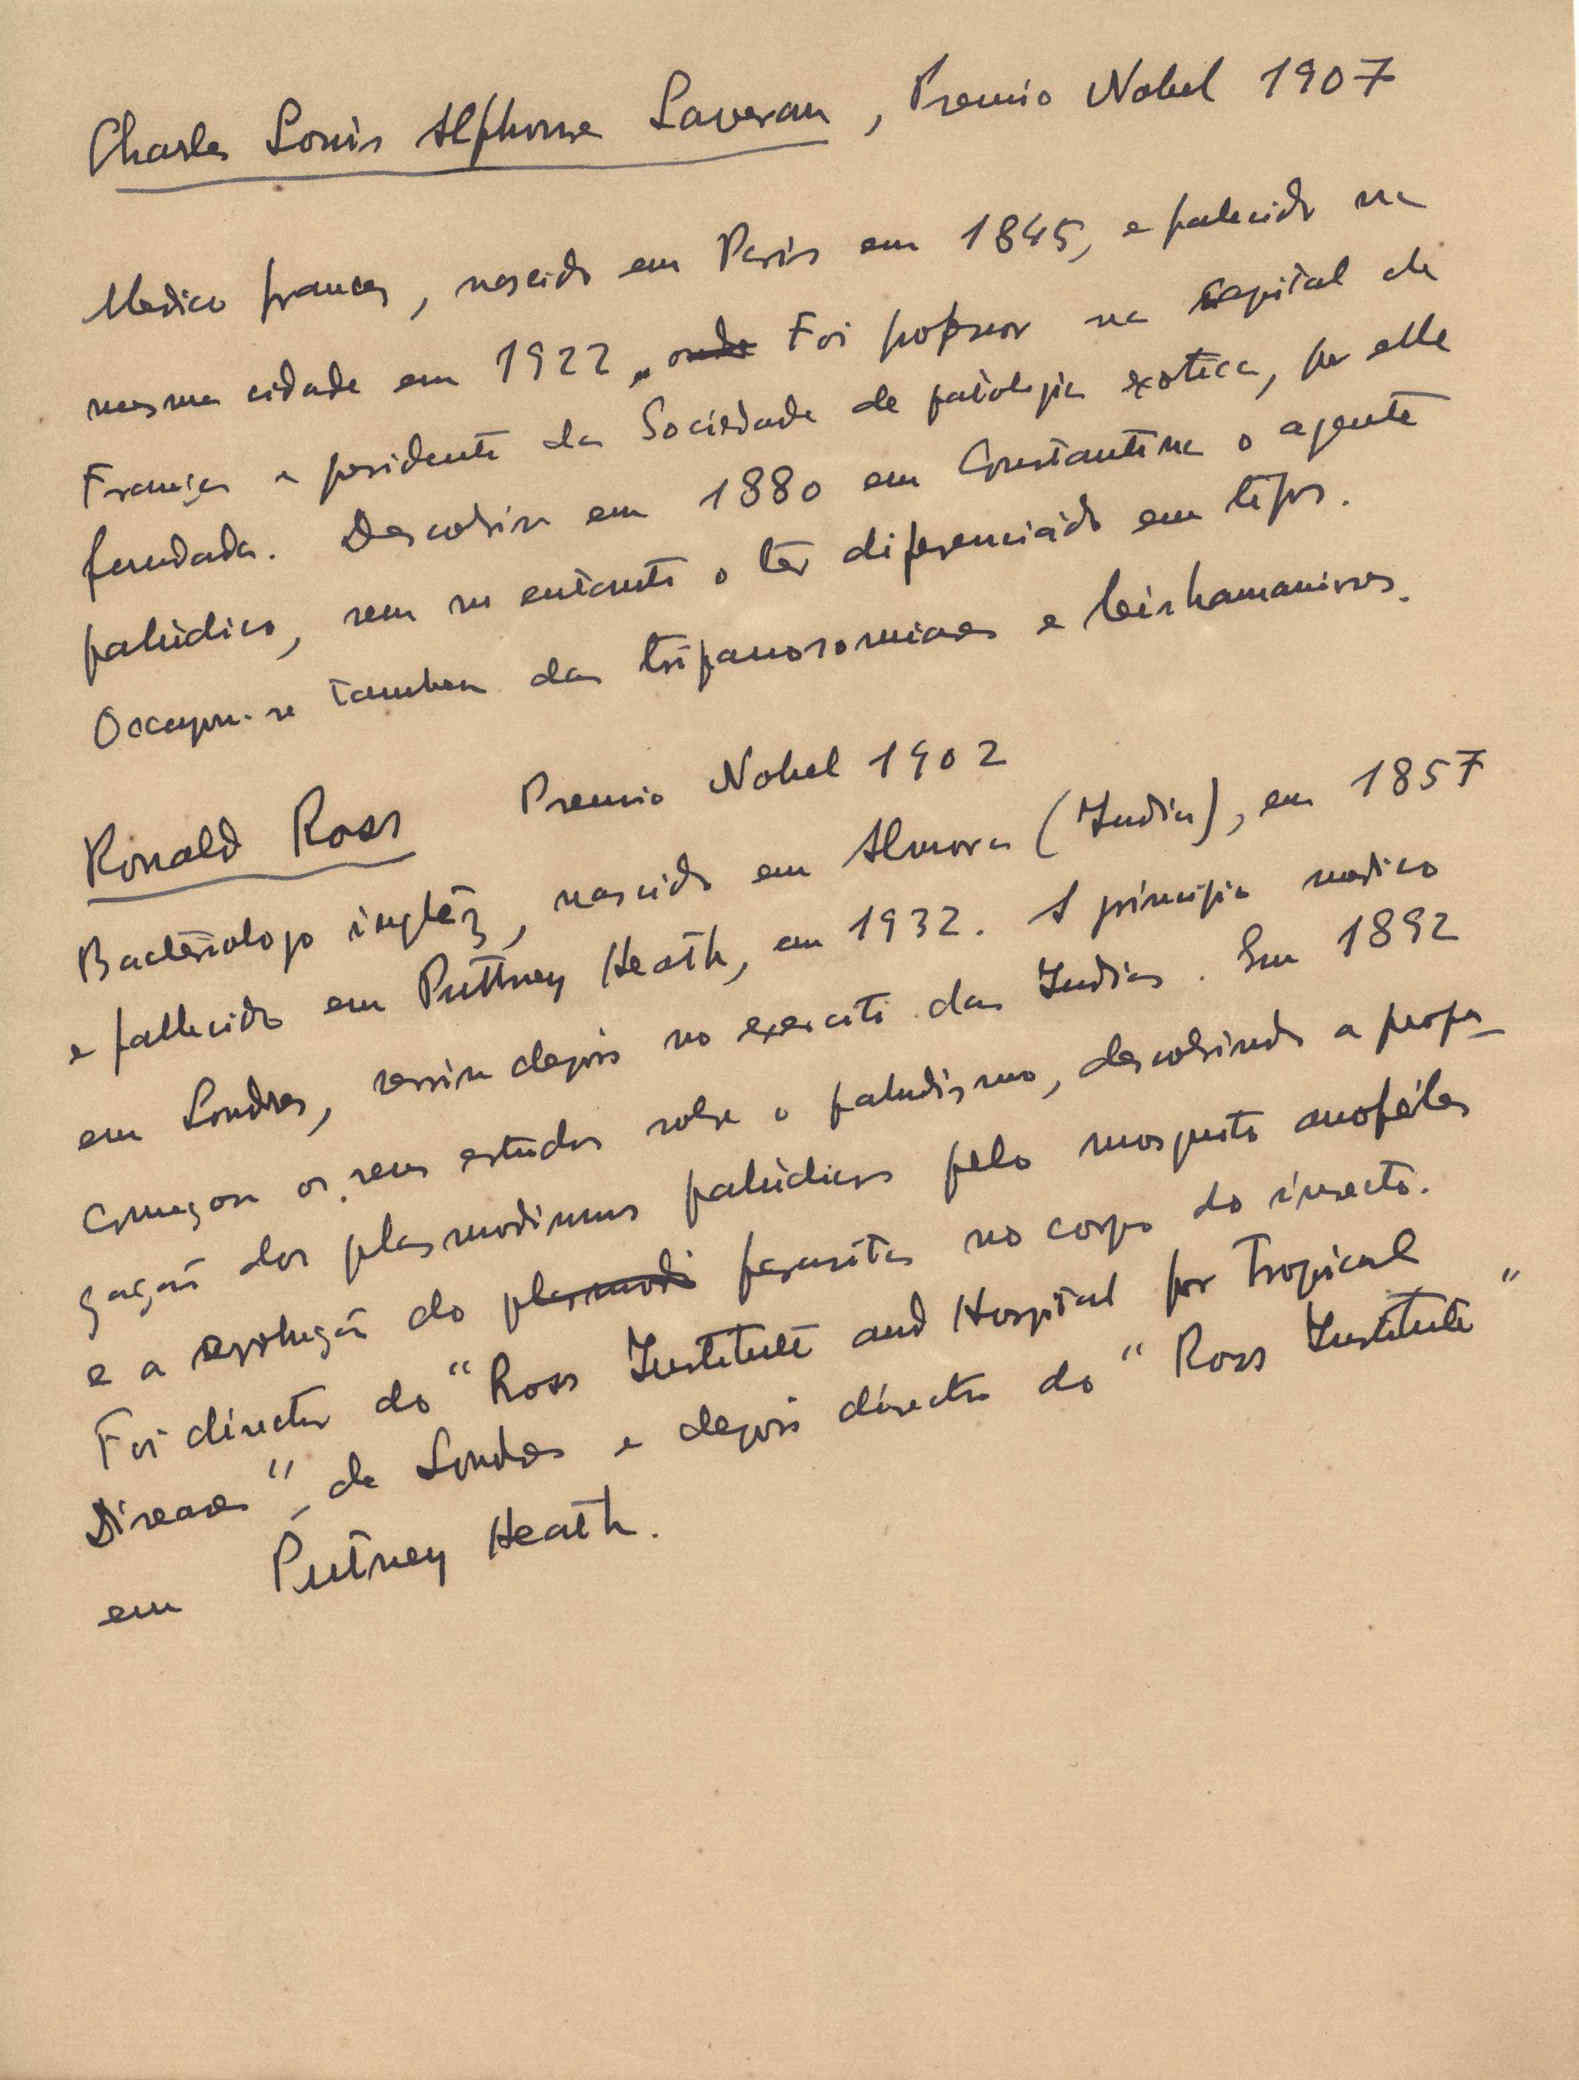 Charles Louis Alphonse Laveran, Premio Nobel 1907
Medico frances, nascido em Paris em 1845, e falecido na
mesma cidade em 1922, onde Foi professor na capital da
França e presidente da Sociedade de patologia exotica, por elle
fundada. Descobriu em 1880 em Constantina o agente
palúdico, sem no entanto o ter diferenciado em tipos.
Occupou-se tambem das tripanosomiases e leishamanioses.
Ronald Ross Premio Nobel 1902
Bacteriologo inglêz, nascido em Almora (India), em 1857
e fallecido em Puttney Heath, em 1932. A principio medico
em Londres, serviu depois no exercito das Indias. Em 1892
começou os seus estudos sobre o paludismo, descobrindo a propa-
gação dos plasmodiuns palúdicos pelo mosquito anofeles
e a evolução do plasmodi parasita no corpo do insecto.
Foi director do "Ross Institute and Hospital for Tropical
Diseases", de Londres e depois director do "Ross Institute"
em Putney Heath.